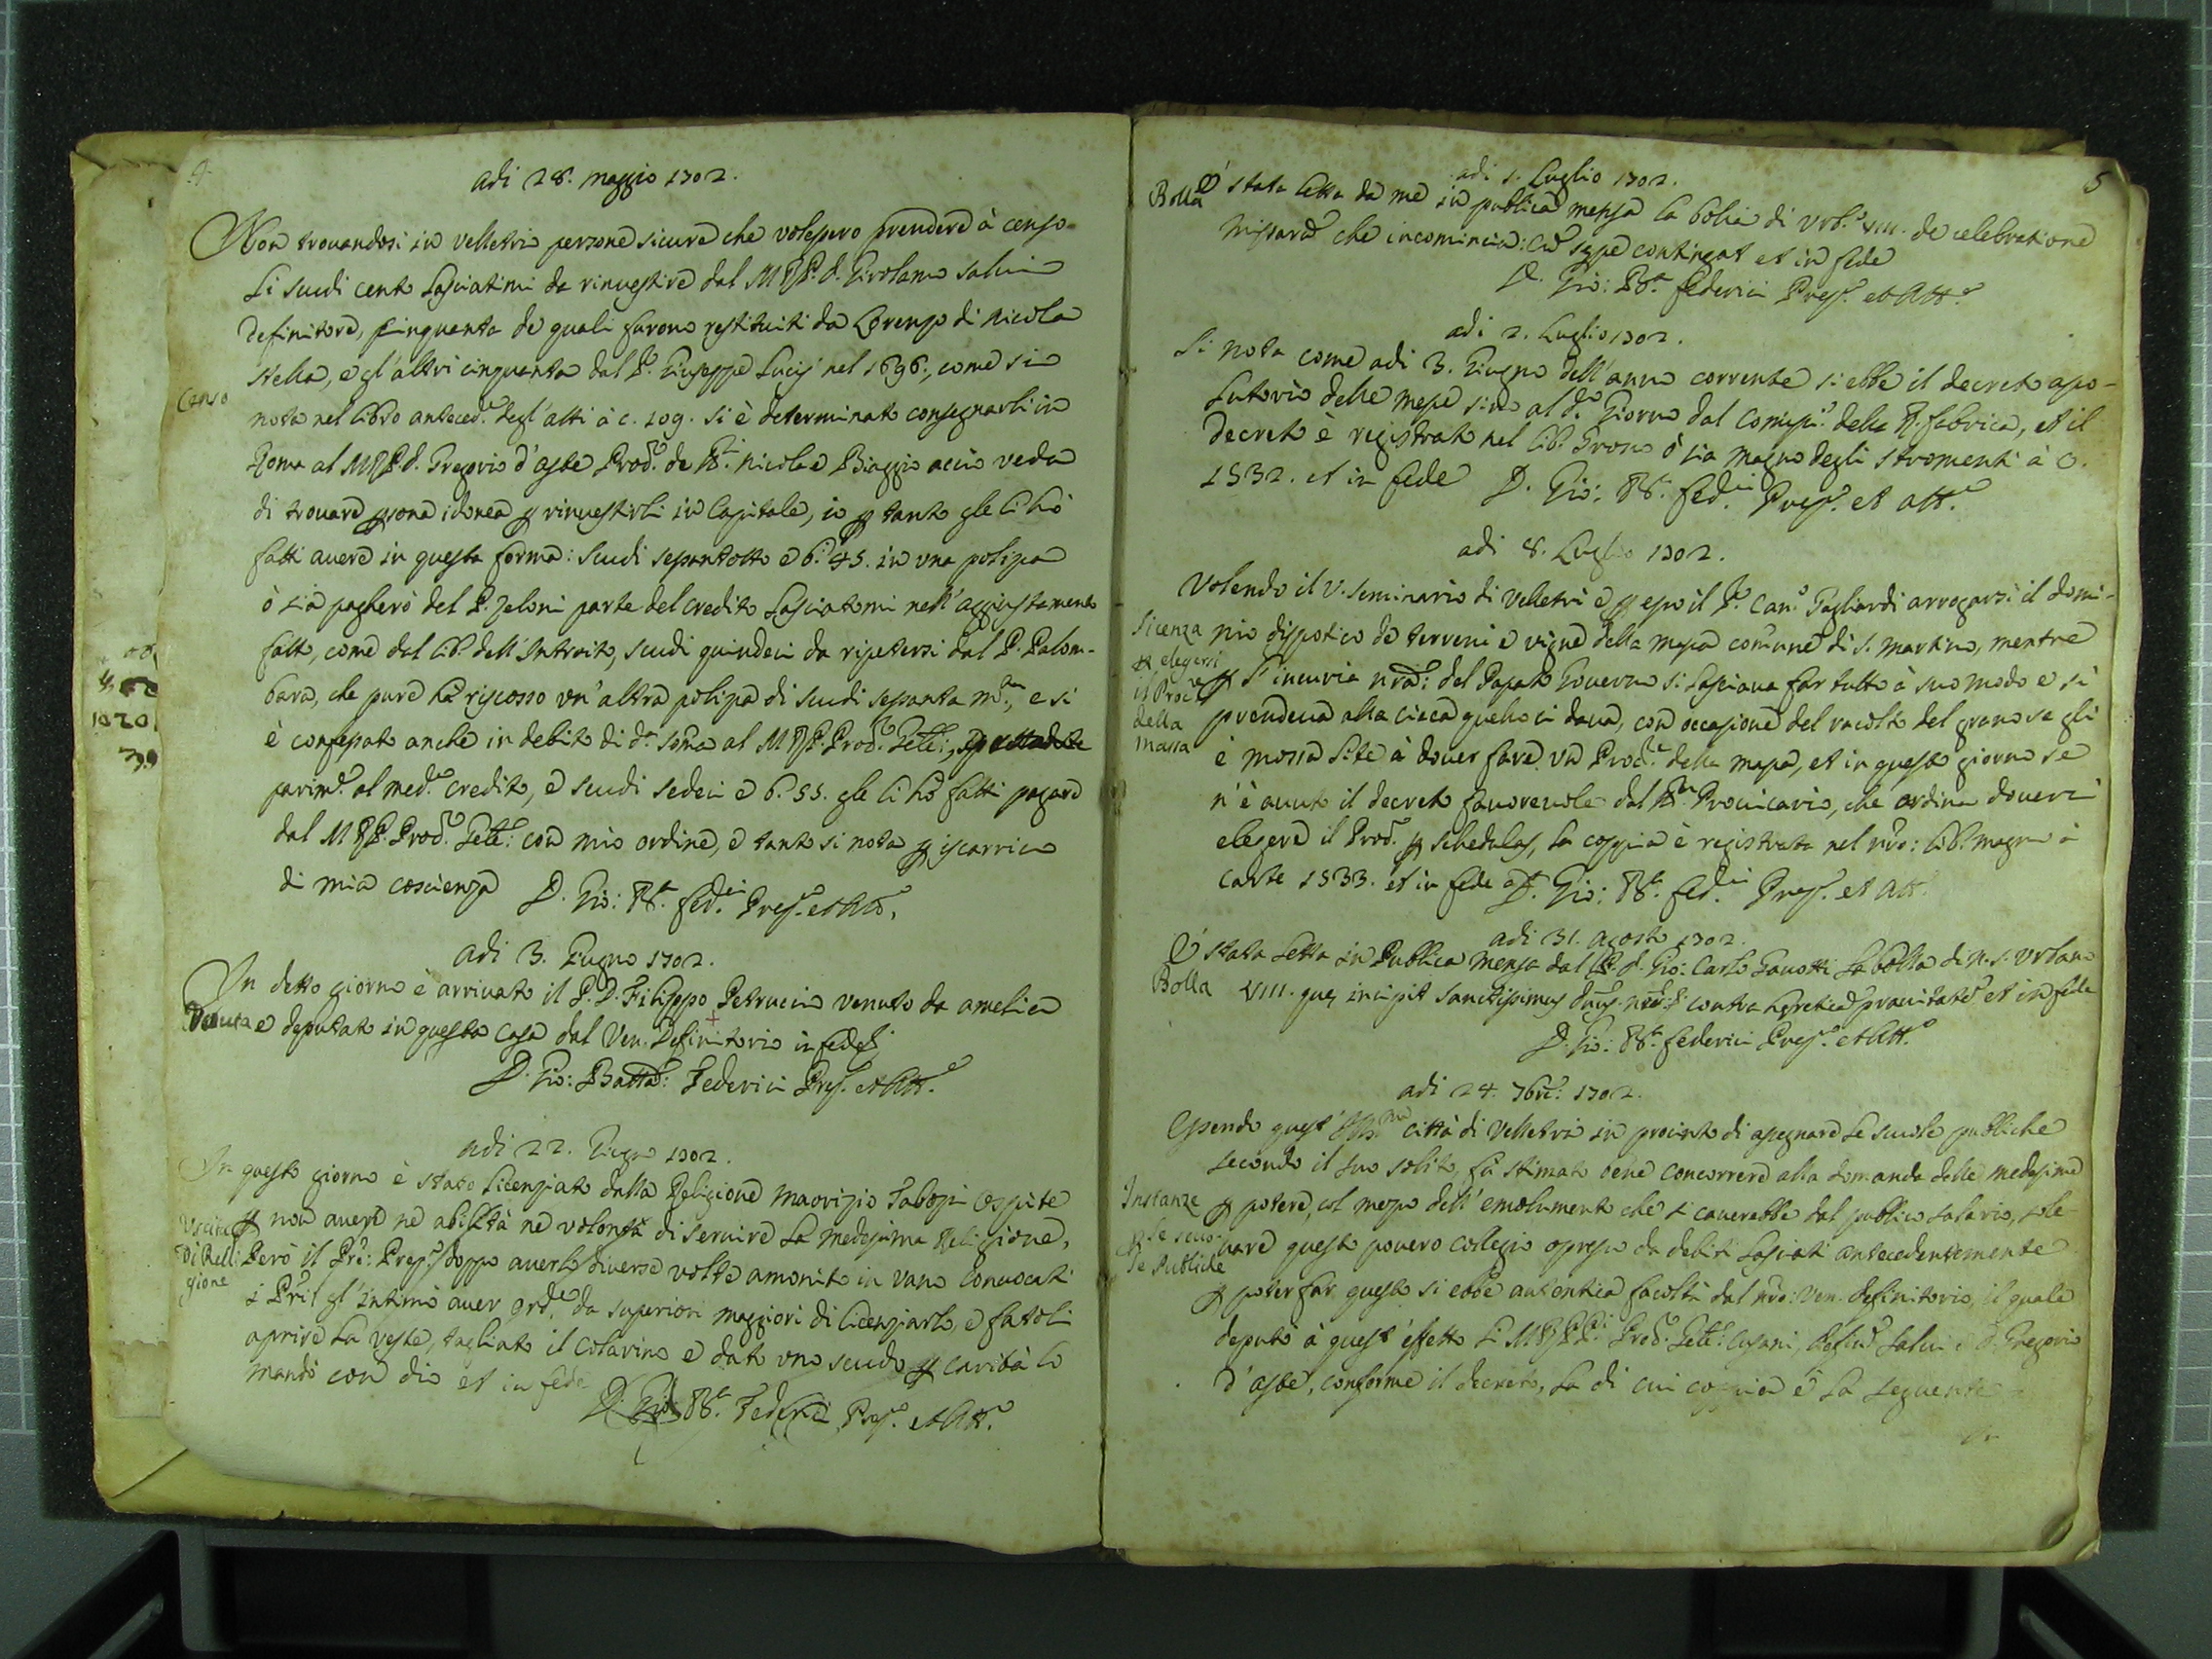 4.
adi 28. maggio 1702.
Non trouandosi in Velletri persone sicure che volessero prendere à censo
Censo
li scudi cento lasciatimi da rinuestire dal M R P. d. Girolamo Salui
definitore, cinquanta de quali furono restituiti da Lorenzo di Nicola
Stella, e gl'altri cinquanta dal P. Giuseppe Lucij nel 1696., come si
nota nel libro anteced. degl'atti à c. 109. si è determinato consegnarli in
Roma al M R P. d. Gregorio d'Aste Prod. de SS. Nicola e Biaggio acciò veda
di trouare psona idonea p rinuestirli in Capitale, io p tanto gle li hò
fatti auere in questa forma: scudi sessantotto e b. 45. in una polisa
ò sia pagherò del P. Zeloni parte del credito lasciatomi nell'aggiustamento
fatto, come dal lib. dell'Introito, scudi quindeci da ripetersi dal P. Palom-
bara, che pure hà riscosso un'altra polisa di scudi sessanta e si
è confessato anche in debito di d. soma al M R P. Prod. Gele:,
parim. al med. credito, e scudi sedeci e b. 55. gle li hò fatti pagare
dal M R P. Prod. Gele: con mio ordine, e tanto si nota p iscarrico
di mia coscienza D. Gio: Bta. Fed.ci Prep. et Att.
adi 3. Giugno 1702.
In detto giorno è arriuato il P. D. Filippo Petrucci venuto da amelia
Venuta
e deputato in questa Casa dal Ven. Definitorio in fede
D. Gio: Batta: Federici Prep. et Att.
adi 22. Giugno 1702.
In questo giorno è stato licenziato dalla Religione Maorizio Ospite
Uscita
di Reli
gione
p non auere ne abilità ne volontà di seruire la medesima Religione,
Però il Pre: Prep. doppo auerlo diuerse volte amonito in vano Conuocati
i Pri gl'intimò auer ord. da superiori maggiori di licenziarlo, e fatoli
aprire la veste, tagliato il colarino e dato uno scudo p carità lo
mandò con dio et in fede
D. Gio: Bta. Federici Prep. et Att.
5
adi 1. Luglio 1702.
Bolla
È stata letta da me in publica mensa la bolla di Urb. VIII. de celebratione
missarum che incomincia: Cum sepe contingat et in fede
D. Gio: Bta. Federici Prep. et Att.
adi 2. Luglio 1702.
Si nota come adi 3. Giugno dell'anno corrente si ebbe il decreto apo-
lutorio delle messe sino al d. Giorno dal Comiss. della R. fabrica, et il
decreto è registrato nel lib. Grosso ò sia magno degli stromenti à c.
1532. et in fede D. Gio: Bta. Fed.ci Prep. et att.
adi 8. Luglio 1702.
Volendo il V. Seminario di Velletri e p esso il P. Can. Gagliardi arrogarsi il domi-
Licenza
p elegersi
il Proc.
della
Massa
nio dispotico de terreni e vigne della massa comune di S. Martino, mentre
p l'incuria nra: del Passato Gouerno si lasciaua far tutto à suo modo e si
prendeua alla cieca quello ci daua, con occasione del racolto del grano se gli
è mossa lite à douer fare un Proc. della massa, et in questo giorno se
n'è auuto il decreto fauoreuole dal Prouicario, che ordina douersi
elegere il Prod. p schedulas, la coppia è registrata nel nro: lib. magno à
carte 1533. et in fede D. Gio: Bta. Fed.ci Prep. et Att.
adi 31. Agosto 1702.
Bolla
È stata letta in Publica mensa dal P. d. Gio: Carlo Gauotti la bolla di N. S. Urbano
VIII. que incipit Sanctissimus contra heretica prauitate et in fede
D. Gio: Bta. Federici Prep. et Att.
adi 24. 7bre: 1702.
Essendo quest' Illma Città di Velletri in procinto di assegnare le scuole publiche
Instanze
p le scuo-
le Publiche
secondo il suo solito, fù stimato bene concorrere alla domanda delle medesime
p potere, col mezo dell'emolumento che si cauerebbe dal publico salario, sole-
uare questo pouero collegio opresso da debiti lasciati antecedentemente
p poter far questo si ebbe autentica facoltà dal nro: Ven. definitorio, il quale
deputò à quest'effetto li M R PP. Prod. Gele. Cusani, defin. Salui e d. Gregorio
d'Aste, conforme il decreto, la di cui coppia è la seguente